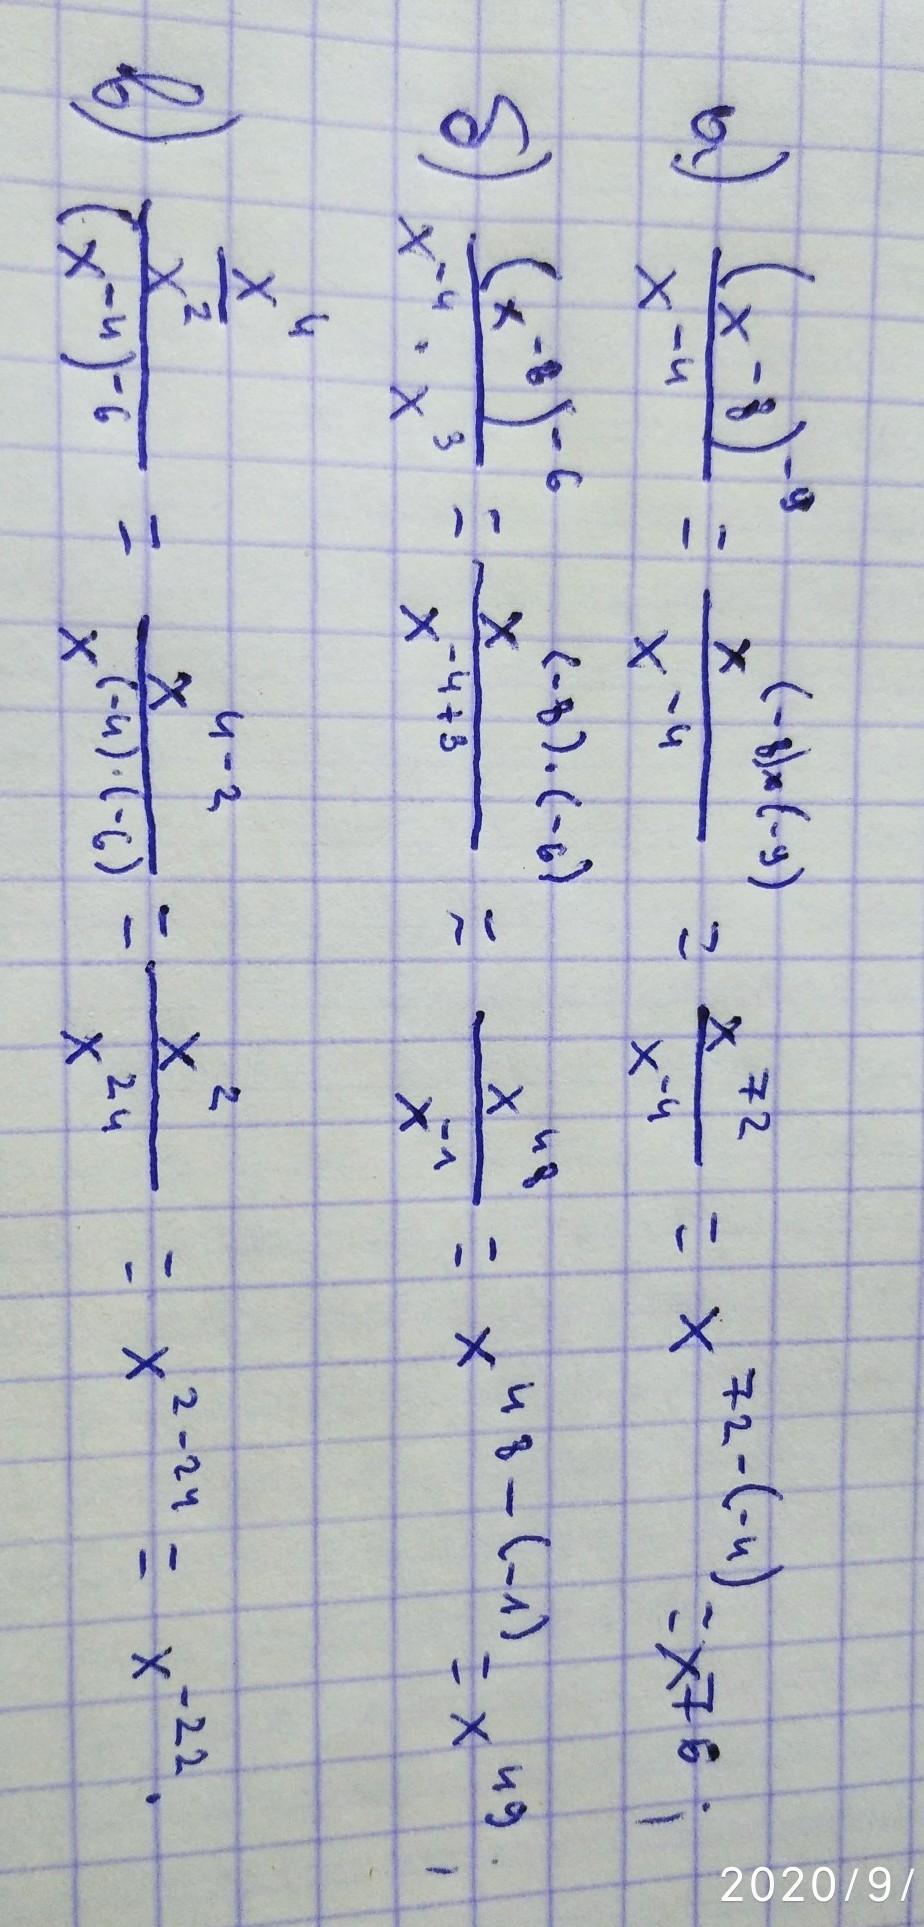 а) (x^-8)^-9 / x^-4 = x^(-8)×(-9) / x^-4 = x^72 / x^-4 = x^72-(-4) = x^76 ;
б) (x^-8)^-6 / x^-4 · x^3 = x^(-8)·(-6) / x^-4+3 = x^48 / x^-1 = x^48-(-1) = x^49 ;
в) x^4 / x^2 / (x^-4)^-6 = x^4-2 / x^(-4)·(-6) = x^2 / x^24 = x^2-24 = x^-22 .
2020/9/